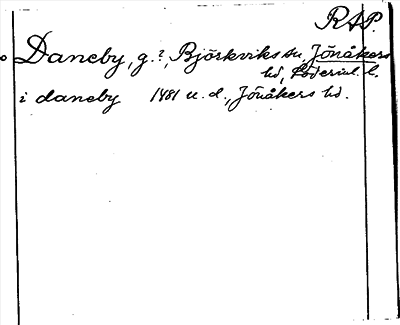 RAP.
Daneby, g.?, Björkviks sn, Jönåkers
hd, Söderml. l.
i daneby 1481 u.d., Jönåkers hd.